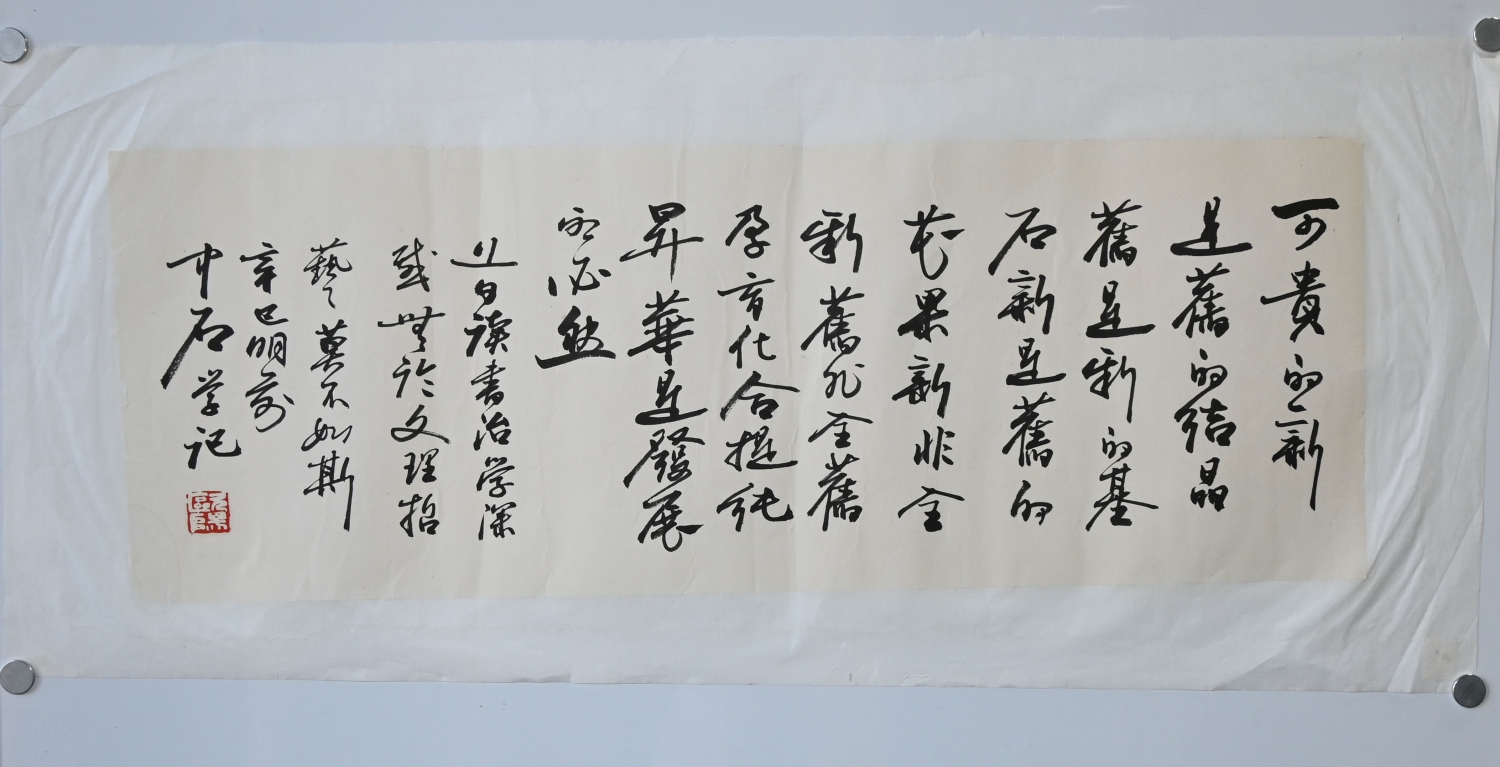 可貴的新
是舊的結晶
舊是新的基
石新是舊的
花果新非全
新舊非全舊
孕育化合提純
昇華是發展
之必然
近日读书治学深
感無論文理哲
藝莫不如斯
辛巳明前
中石学记